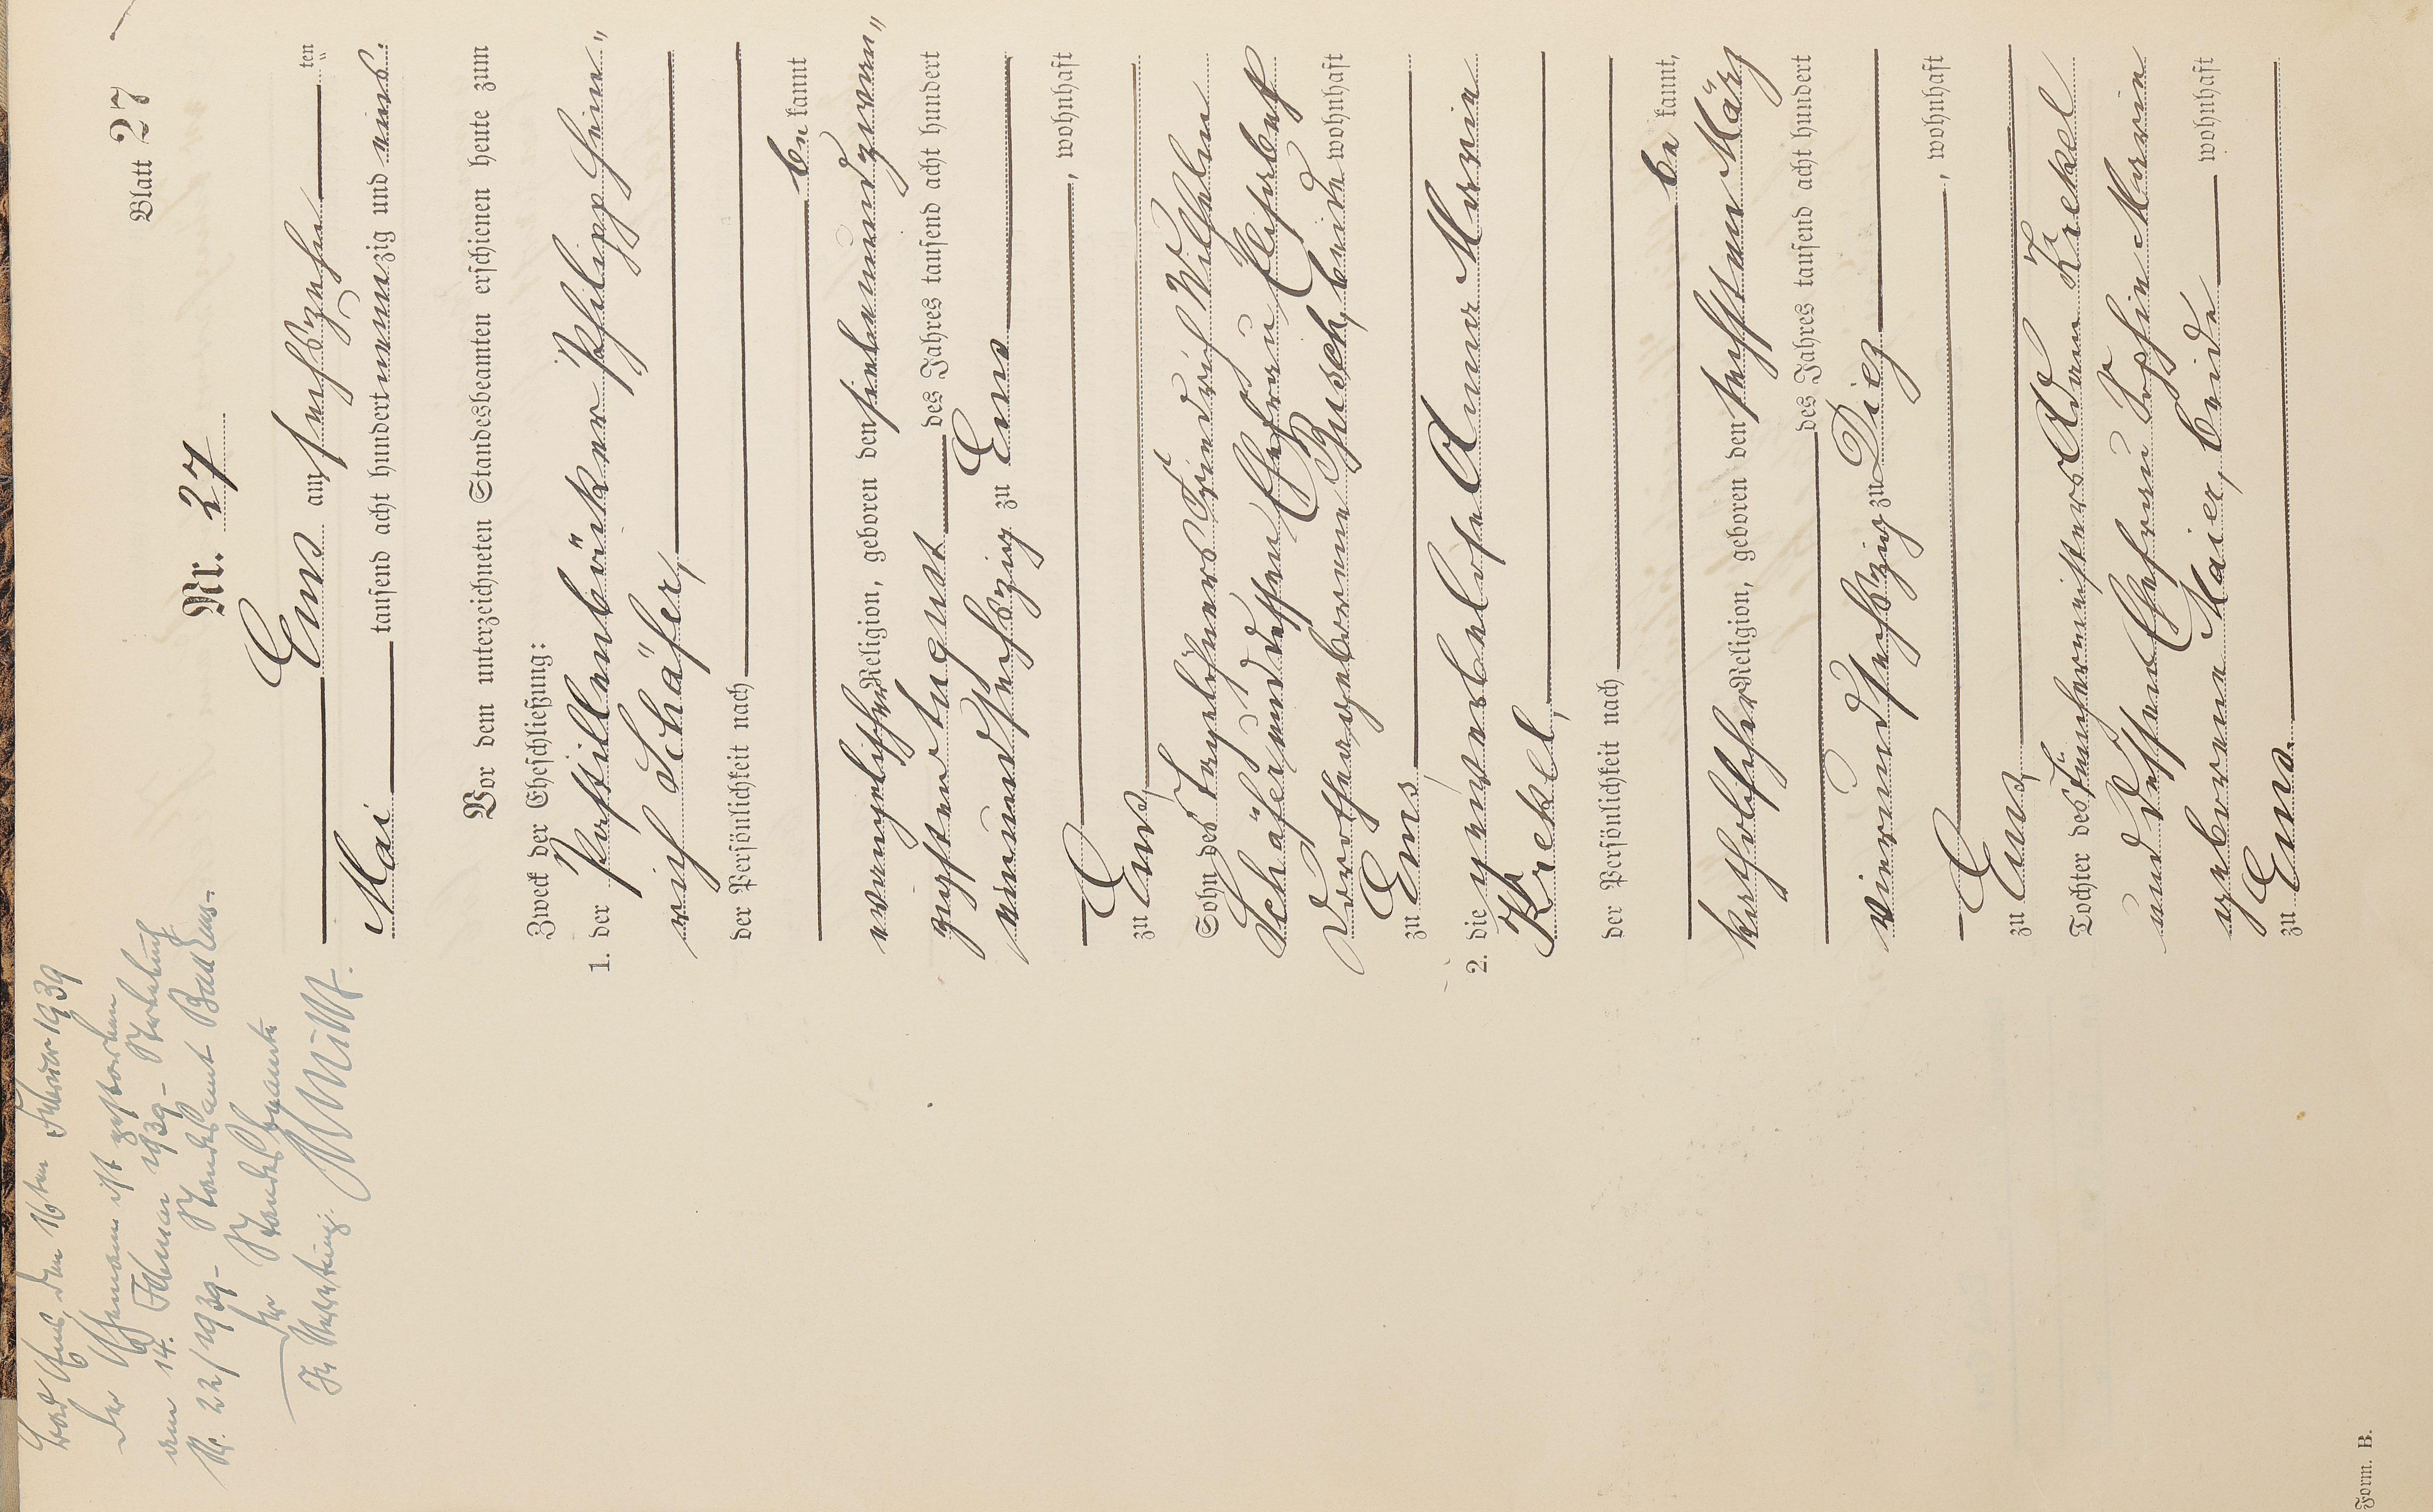 Blatt 27
Nr. 27
Ems am sechszehn ten
Mai tausend acht hundert neunzig und eins.
Vor dem unterzeichneten Standesbeamten erschienen heute zum
Zweck der Eheschließung:
1. der Pastillenbäcker Philipp Hein„
rich Schäfer,
der Persönlichkeit nach
be kannt
evangelischer Religion, geboren den siebenundzwan„
zigsten August des Jahres tausend acht hundert
neunundsechszig zu Ems
, wohnhaft
zu Ems,
Sohn des Taglöhners Friedrich Wilhelm
Schäfer und dessen Ehefrau Elisabeth
Dorothea geborene Busch, beide wohnhaft
zu Ems
2. die gewerbelose Anna Maria
Krekel,
der Persönlichkeit nach
be kannt,
katholischer Religion, geboren den sechsten März
des Jahres tausend acht hundert
vierundsechszig zu Diez
, wohnhaft
zu Ems,
Tochter des Tünchermeisters Adam Krekel
und dessen Ehefrau Sophie Marie
geborene Maier, beide wohnhaft
zu Ems.
Bad Ems, den 16ten Februar 1939
Der Ehemann ist gestorben
am 14. Februar 1939 - Sterbebuch
Nr. 22/1939 - Standesamt Bad Ems -
Der Standesbeamte
In Vertretung:
Form. B.